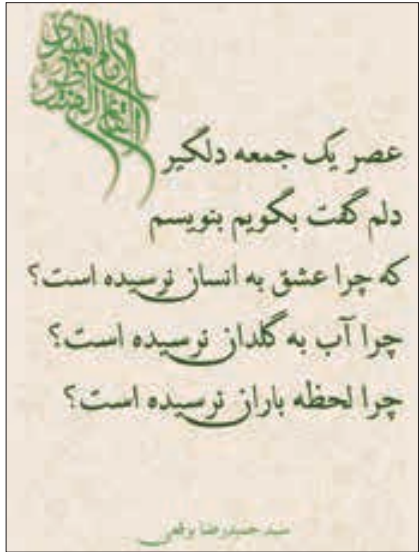 عصر یک جمعه دلگیر
دلم گفت بگویم بنویسم
که چرا عشق به انسان نرسیده است؟
چرا آب به گلدان نرسیده است؟
چرا لحظه باران نرسیده است؟
سید حمیدرضا برقعی